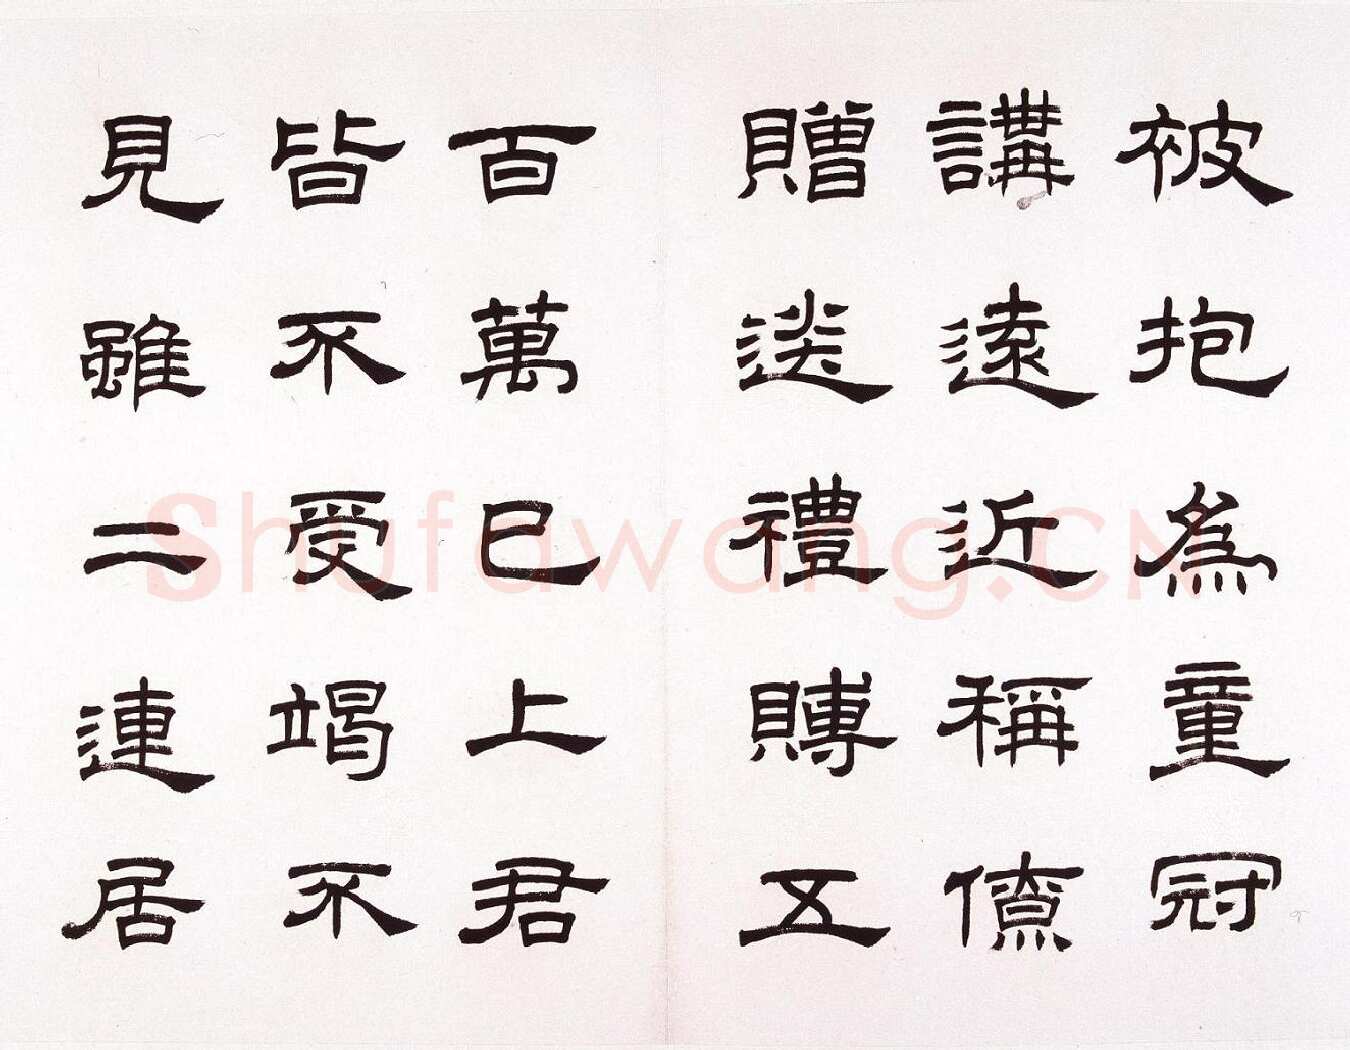 被抱為童冠
講遠近稱僚
贈送禮賻五
百萬已上君
皆不受竭不
見雖二連居
Shufawang.CN